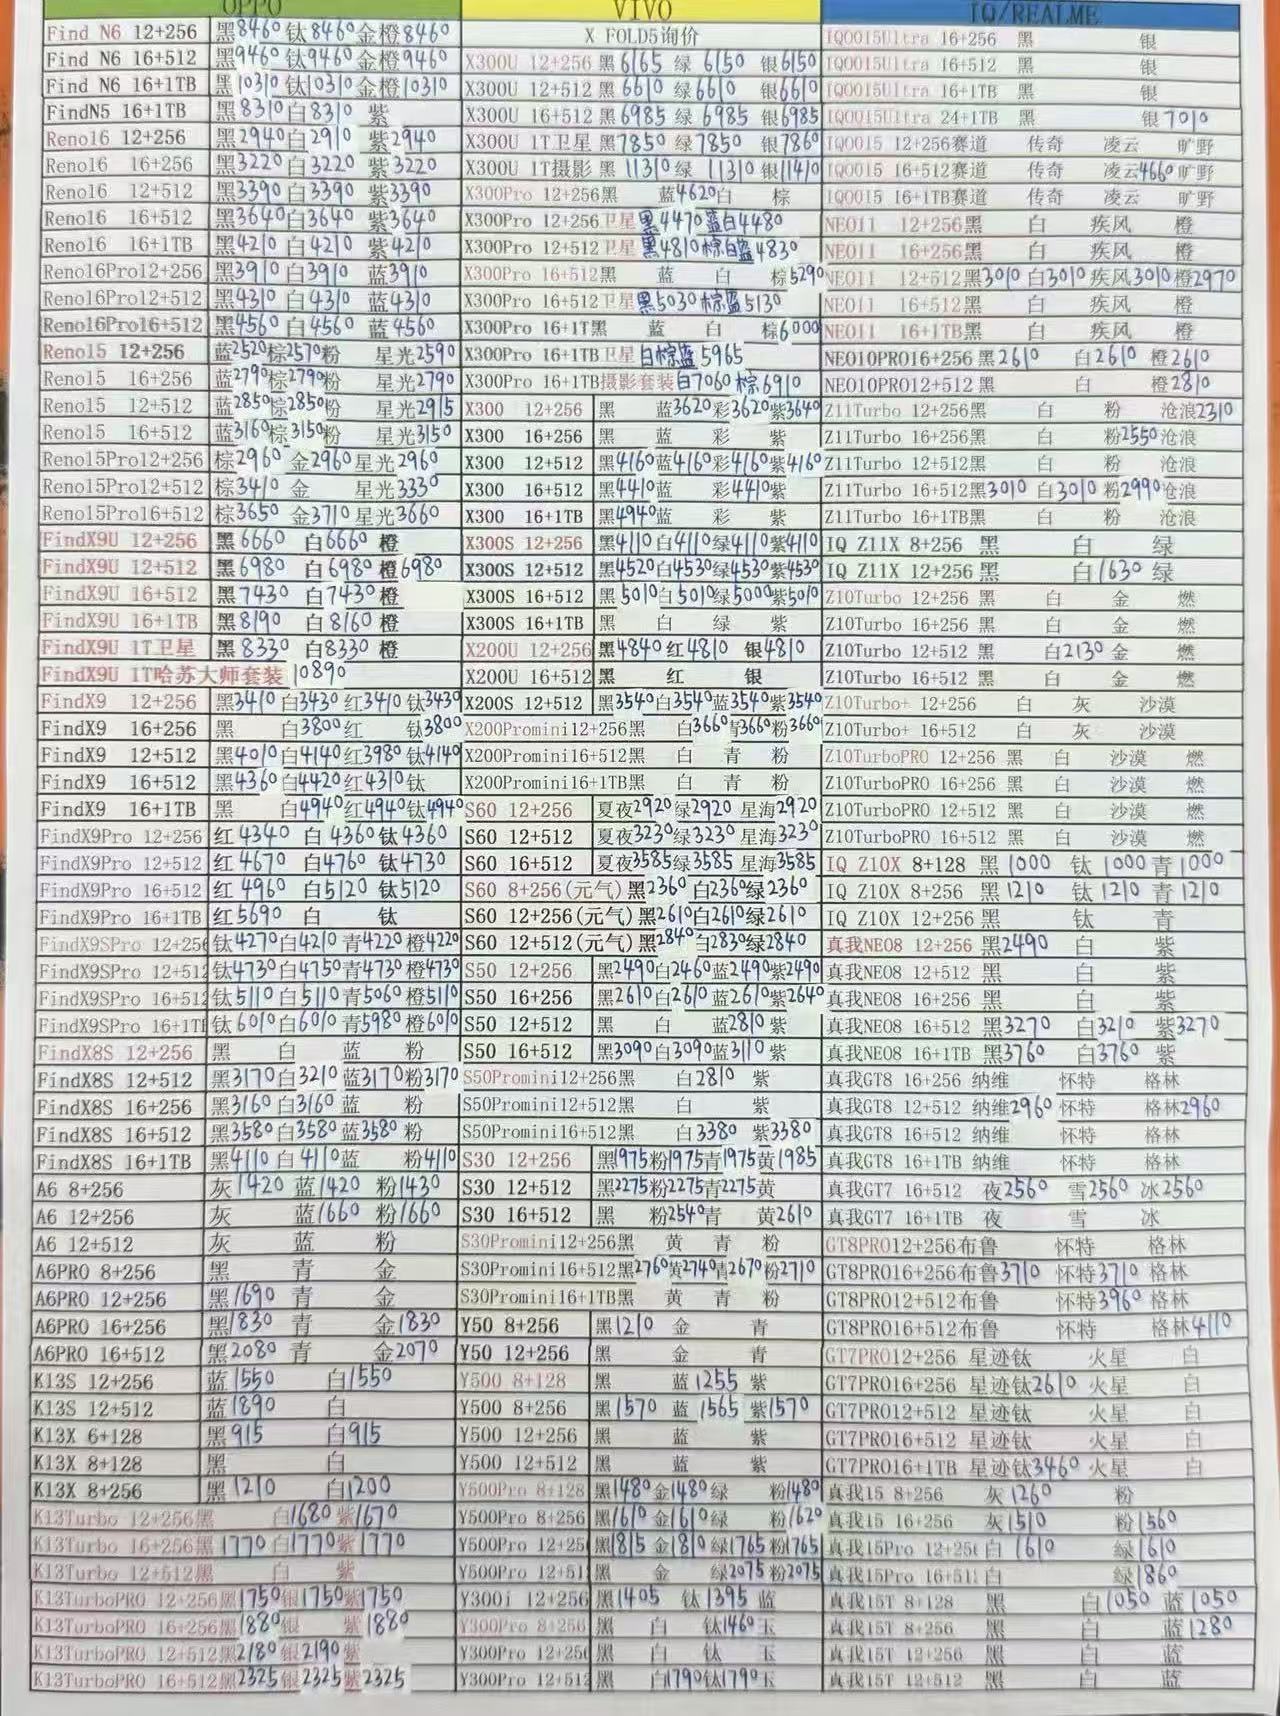 OPPO
Find N6 12+256 黑8460 钛8460 金橙8460
Find N6 16+512 黑9460 钛9460 金橙9460
Find N6 16+1TB 黑10310 钛10310 金橙10310
FindN5 16+1TB 黑8310 白8310 紫
Reno16 12+256 黑2940 白2910 紫2940
Reno16 16+256 黑3220 白3220 紫3220
Reno16 12+512 黑3390 白3390 紫3390
Reno16 16+512 黑3640 白3640 紫3640
Reno16 16+1TB 黑4210 白4210 紫4210
Reno16Pro12+256 黑3910 白3910 蓝3910
Reno16Pro12+512 黑4310 白4310 蓝4310
Reno16Pro16+512 黑4560 白4560 蓝4560
Reno15 12+256 蓝2520 棕2570 粉 星光2590
Reno15 16+256 蓝2790 棕2790 粉 星光2790
Reno15 12+512 蓝2850 棕2850 粉 星光2915
Reno15 16+512 蓝3160 棕3150 粉 星光3150
Reno15Pro12+256 棕2960 金2960 星光2960
Reno15Pro12+512 棕3410 金 星光3330
Reno15Pro16+512 棕3650 金3710 星光3660
FindX9U 12+256 黑6660 白6660 橙
FindX9U 12+512 黑6980 白6980 橙6980
FindX9U 16+512 黑7430 白7430 橙
FindX9U 16+1TB 黑8190 白8160 橙
FindX9U 1T卫星 黑8330 白8330 橙
FindX9U 1T哈苏大师套装 10890
FindX9 12+256 黑3410 白3430 红3410 钛3430
FindX9 16+256 黑 白3800 红 钛3800
FindX9 12+512 黑4010 白4140 红3980 钛4140
FindX9 16+512 黑4360 白4420 红4310 钛
FindX9 16+1TB 黑 白4940 红4940 钛4940
FindX9Pro 12+256 红4340 白4360 钛4360
FindX9Pro 12+512 红4670 白4760 钛4730
FindX9Pro 16+512 红4960 白5120 钛5120
FindX9Pro 16+1TB 红5690 白 钛
FindX9SPro 12+256 钛4270 白4210 青4220 橙4220
FindX9SPro 12+512 钛4730 白4750 青4730 橙4730
FindX9SPro 16+512 钛5110 白5110 青5060 橙5110
FindX9SPro 16+1TB 钛6010 白6010 青5980 橙6010
FindX8S 12+256 黑 白 蓝 粉
FindX8S 12+512 黑3170 白3210 蓝3170 粉3170
FindX8S 16+256 黑3160 白3160 蓝 粉
FindX8S 16+512 黑3580 白3580 蓝3580 粉
FindX8S 16+1TB 黑4110 白4110 蓝 粉4110
A6 8+256 灰1420 蓝1420 粉1430
A6 12+256 灰 蓝1660 粉1660
A6 12+512 灰 蓝 粉
A6PRO 8+256 黑 青 金
A6PRO 12+256 黑1690 青 金
A6PRO 16+256 黑1830 青 金1830
A6PRO 16+512 黑2080 青 金2070
K13S 12+256 蓝1550 白1550
K13S 12+512 蓝1890 白
K13X 6+128 黑915 白915
K13X 8+128 黑 白
K13X 8+256 黑1210 白1200
K13Turbo 12+256黑 白1680 紫1670
K13Turbo 16+256黑1770 白1770 紫1770
K13Turbo 12+512黑 白 紫
K13TurboPRO 12+256黑1750 银1750 紫1750
K13TurboPRO 16+256黑1880 银 紫1880
K13TurboPRO 12+512黑2180 银2190 紫
K13TurboPRO 16+512黑2325 银2325 紫2325
VIVO
X FOLD5询价
X300U 12+256 黑6165 绿6150 银6150
X300U 12+512 黑6610 绿6610 银6610
X300U 16+512 黑6985 绿6985 银6985
X300U 1T卫星 黑7850 绿7850 银7860
X300U 1T摄影 黑11310 绿11310 银11410
X300Pro 12+256黑 蓝4620 白 棕
X300Pro 12+256卫星 黑4470 蓝白4480
X300Pro 12+512卫星 黑4810 棕白蓝4830
X300Pro 16+512黑 蓝 白 棕5290
X300Pro 16+512卫星 黑5030 棕蓝5130
X300Pro 16+1T黑 蓝 白 棕6000
X300Pro 16+1TB卫星 白棕蓝5965
X300Pro 16+1TB摄影套装 白7060 棕6910
X300 12+256 黑 蓝3620 彩3620 紫3640
X300 16+256 黑 蓝 彩 紫
X300 12+512 黑4160 蓝4160 彩4160 紫4160
X300 16+512 黑4410 蓝 彩4410 紫
X300 16+1TB 黑4940 蓝 彩 紫
X300S 12+256 黑4110 白4110 绿4110 紫4110
X300S 12+512 黑4520 白4530 绿4530 紫4530
X300S 16+512 黑5010 白5010 绿5000 紫5010
X300S 16+1TB 黑 白 绿 紫
X200U 12+256 黑4840 红4810 银4810
X200U 16+512 黑 红 银
X200S 12+512 黑3540 白3540 蓝3540 紫3540
X200Promini12+256黑 白3660 青3660 粉3660
X200Promini16+512黑 白 青 粉
X200Promini16+1TB黑 白 青 粉
S60 12+256 夏夜2920 绿2920 星海2920
S60 12+512 夏夜3230 绿3230 星海3230
S60 16+512 夏夜3585 绿3585 星海3585
S60 8+256(元气) 黑2360 白2360 绿2360
S60 12+256(元气) 黑2610 白2610 绿2610
S60 12+512(元气) 黑2840 白2830 绿2840
S50 12+256 黑2490 白2460 蓝2490 紫2490
S50 16+256 黑2610 白2610 蓝2610 紫2640
S50 12+512 黑 白 蓝2810 紫
S50 16+512 黑3090 白3090 蓝3110 紫
S50Promini12+256黑 白2810 紫
S50Promini12+512黑 白 紫
S50Promini16+512黑 白3380 紫3380
S30 12+256 黑1975 粉1975 青1975 黄1985
S30 12+512 黑2275 粉2275 青2275 黄
S30 16+512 黑 粉2540 青 黄2610
S30Promini12+256黑 黄 青 粉
S30Promini16+512黑2760 黄2740 青2670 粉2710
S30Promini16+1TB黑 黄 青 粉
Y50 8+256 黑1210 金 青
Y50 12+256 黑 金 青
Y500 8+128 黑 蓝1255 紫
Y500 8+256 黑1570 蓝1565 紫1570
Y500 12+256 黑 蓝 紫
Y500 12+512 黑 蓝 紫
Y500Pro 8+128 黑1480 金1480 绿 粉1480
Y500Pro 8+256 黑1610 金1610 绿 粉1620
Y500Pro 12+25 黑1815 金1810 绿1765 粉1765
Y500Pro 12+51 黑 金 绿2075 粉2075
Y300i 12+256 黑1405 钛1395 蓝
Y300Pro 8+256 黑 白 钛1460 玉
Y300Pro 12+256 黑 白 钛 玉
Y300Pro 12+512 黑 白1790 钛1790 玉
IQ/REALME
IQOO15Ultra 16+256 黑 银
IQOO15Ultra 16+512 黑 银
IQOO15Ultra 16+1TB 黑 银
IQOO15Ultra 24+1TB 黑 银7010
IQOO15 12+256赛道 传奇 凌云 旷野
IQOO15 16+512赛道 传奇 凌云4660 旷野
IQOO15 16+1TB赛道 传奇 凌云 旷野
NEO11 12+256黑 白 疾风 橙
NEO11 16+256黑 白 疾风 橙
NEO11 12+512黑3010 白3010 疾风3010 橙2970
NEO11 16+512黑 白 疾风 橙
NEO11 16+1TB黑 白 疾风 橙
NEO10PRO16+256 黑2610 白2610 橙2610
NEO10PRO12+512 黑 白 橙2810
Z11Turbo 12+256黑 白 粉 沧浪2310
Z11Turbo 16+256黑 白 粉2550 沧浪
Z11Turbo 12+512黑 白 粉 沧浪
Z11Turbo 16+512黑3010 白3010 粉2990 沧浪
Z11Turbo 16+1TB黑 白 粉 沧浪
IQ Z11X 8+256 黑 白 绿
IQ Z11X 12+256 黑 白1630 绿
Z10Turbo 12+256 黑 白 金 燃
Z10Turbo 16+256 黑 白 金 燃
Z10Turbo 12+512 黑 白2130 金 燃
Z10Turbo 16+512 黑 白 金 燃
Z10Turbo+ 12+256 白 灰 沙漠
Z10Turbo+ 16+512 白 灰 沙漠
Z10TurboPRO 12+256 黑 白 沙漠 燃
Z10TurboPRO 16+256 黑 白 沙漠 燃
Z10TurboPRO 12+512 黑 白 沙漠 燃
Z10TurboPRO 16+512 黑 白 沙漠 燃
IQ Z10X 8+128 黑1000 钛1000 青1000
IQ Z10X 8+256 黑1210 钛1210 青1210
IQ Z10X 12+256 黑 钛 青
真我NEO8 12+256 黑2490 白 紫
真我NEO8 12+512 黑 白 紫
真我NEO8 16+256 黑 白 紫
真我NEO8 16+512 黑3270 白3210 紫3270
真我NEO8 16+1TB 黑3760 白3760 紫
真我GT8 16+256 纳维 怀特 格林
真我GT8 12+512 纳维2960 怀特 格林2960
真我GT8 16+512 纳维 怀特 格林
真我GT8 16+1TB 纳维 怀特 格林
真我GT7 16+512 夜2560 雪2560 冰2560
真我GT7 16+1TB 夜 雪 冰
GT8PRO12+256布鲁 怀特 格林
GT8PRO16+256布鲁3710 怀特3710 格林
GT8PRO12+512布鲁 怀特3960 格林
GT8PRO16+512布鲁 怀特 格林4110
GT7PRO12+256 星迹钛 火星 白
GT7PRO16+256 星迹钛2610 火星 白
GT7PRO12+512 星迹钛 火星 白
GT7PRO16+512 星迹钛 火星 白
GT7PRO16+1TB 星迹钛3460 火星 白
真我15 8+256 灰1260 粉
真我15 16+256 灰1510 粉1560
真我15Pro 12+256 白1610 绿1610
真我15Pro 16+512 白 绿1860
真我15T 8+128 黑 白1050 蓝1050
真我15T 8+256 黑 白 蓝1280
真我15T 12+256 黑 白 蓝
真我15T 12+512 黑 白 蓝